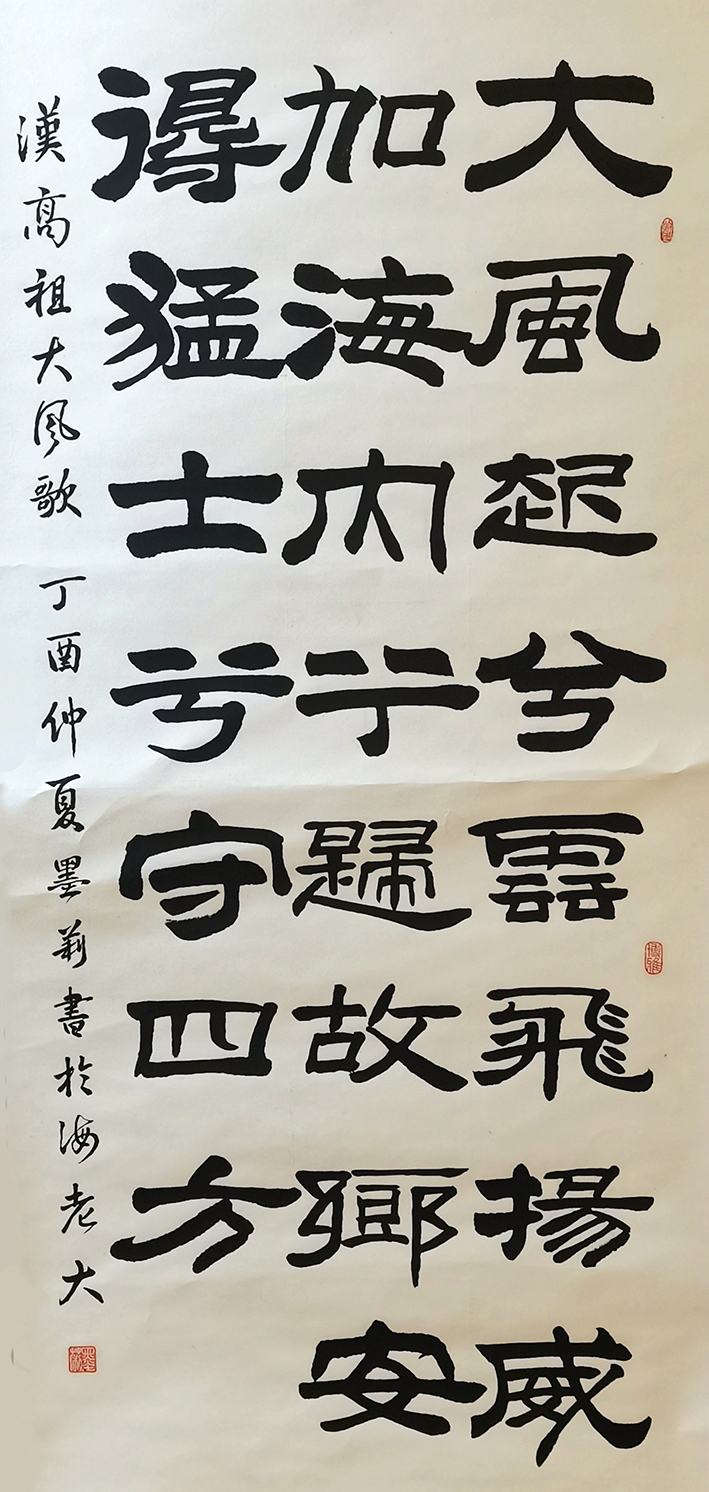 大風起兮雲飛揚威
加海内兮歸故鄉安
得猛士兮守四方
漢高祖大風歌 丁酉仲夏墨莉書於海老大